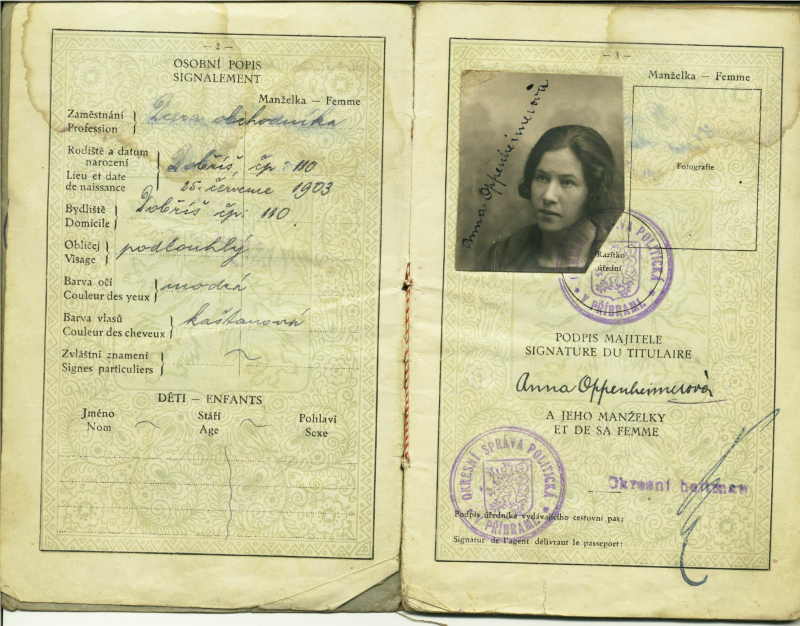 — 2 —
OSOBNÍ POPIS
SIGNALEMENT
Manželka — Femme
Zaměstnání
Profession
Dcera obchodníka
Rodiště a datum
narození
Lieu et date
de naissance
Dobříš, čp: 110
25. července 1903
Bydliště
Domicile
Dobříš čp: 110
Obličej
Visage
podlouhlý
Barva očí
Couleur des yeux
modrá
Barva vlasů
Couleur des cheveux
kaštanová
Zvláštní znamení
Signes particuliers
DĚTI — ENFANTS
Jméno
Nom
Stáří
Age
Pohlaví
Sexe
— 3 —
Manželka — Femme
Fotografie
Anna Oppenheimerová
Razítko
úřední
SPRÁVA POLITICKÁ
V PŘÍBRAMI
PODPIS MAJITELE
SIGNATURE DU TITULAIRE
Anna Oppenheimerová
A JEHO MANŽELKY
ET DE SA FEMME
OKRESNÍ SPRÁVA POLITICKÁ
V PŘÍBRAMI
Okresní hejtman
Podpis úředníka vydávajícího cestovní pas:
Signatur de l'agent délivrant le passeport: